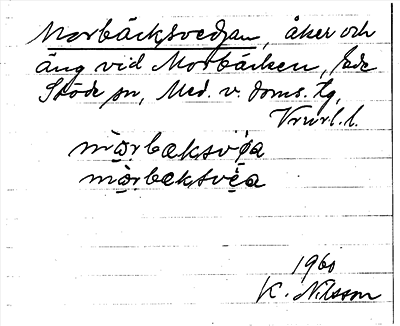 Morbäcksvedjan, åker och
äng vid Morbäcken,
Stöde sn, Med. v. doms. tg,
Vrurl. l.
mòrbæksvéa
mòrbeksvéa
1960
K. Nilsson